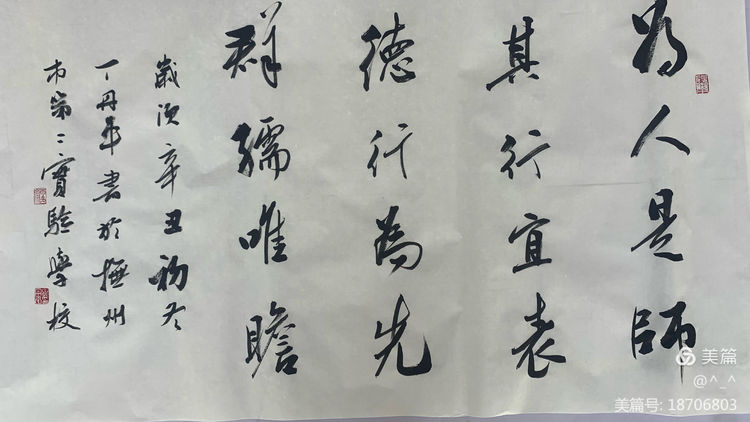 為人是師
其行宜表
德行為先
群孺唯瞻
歲次辛丑初冬
丁丹年書於撫州
市第二實驗學校
美篇
@^_^
美篇号: 18706803